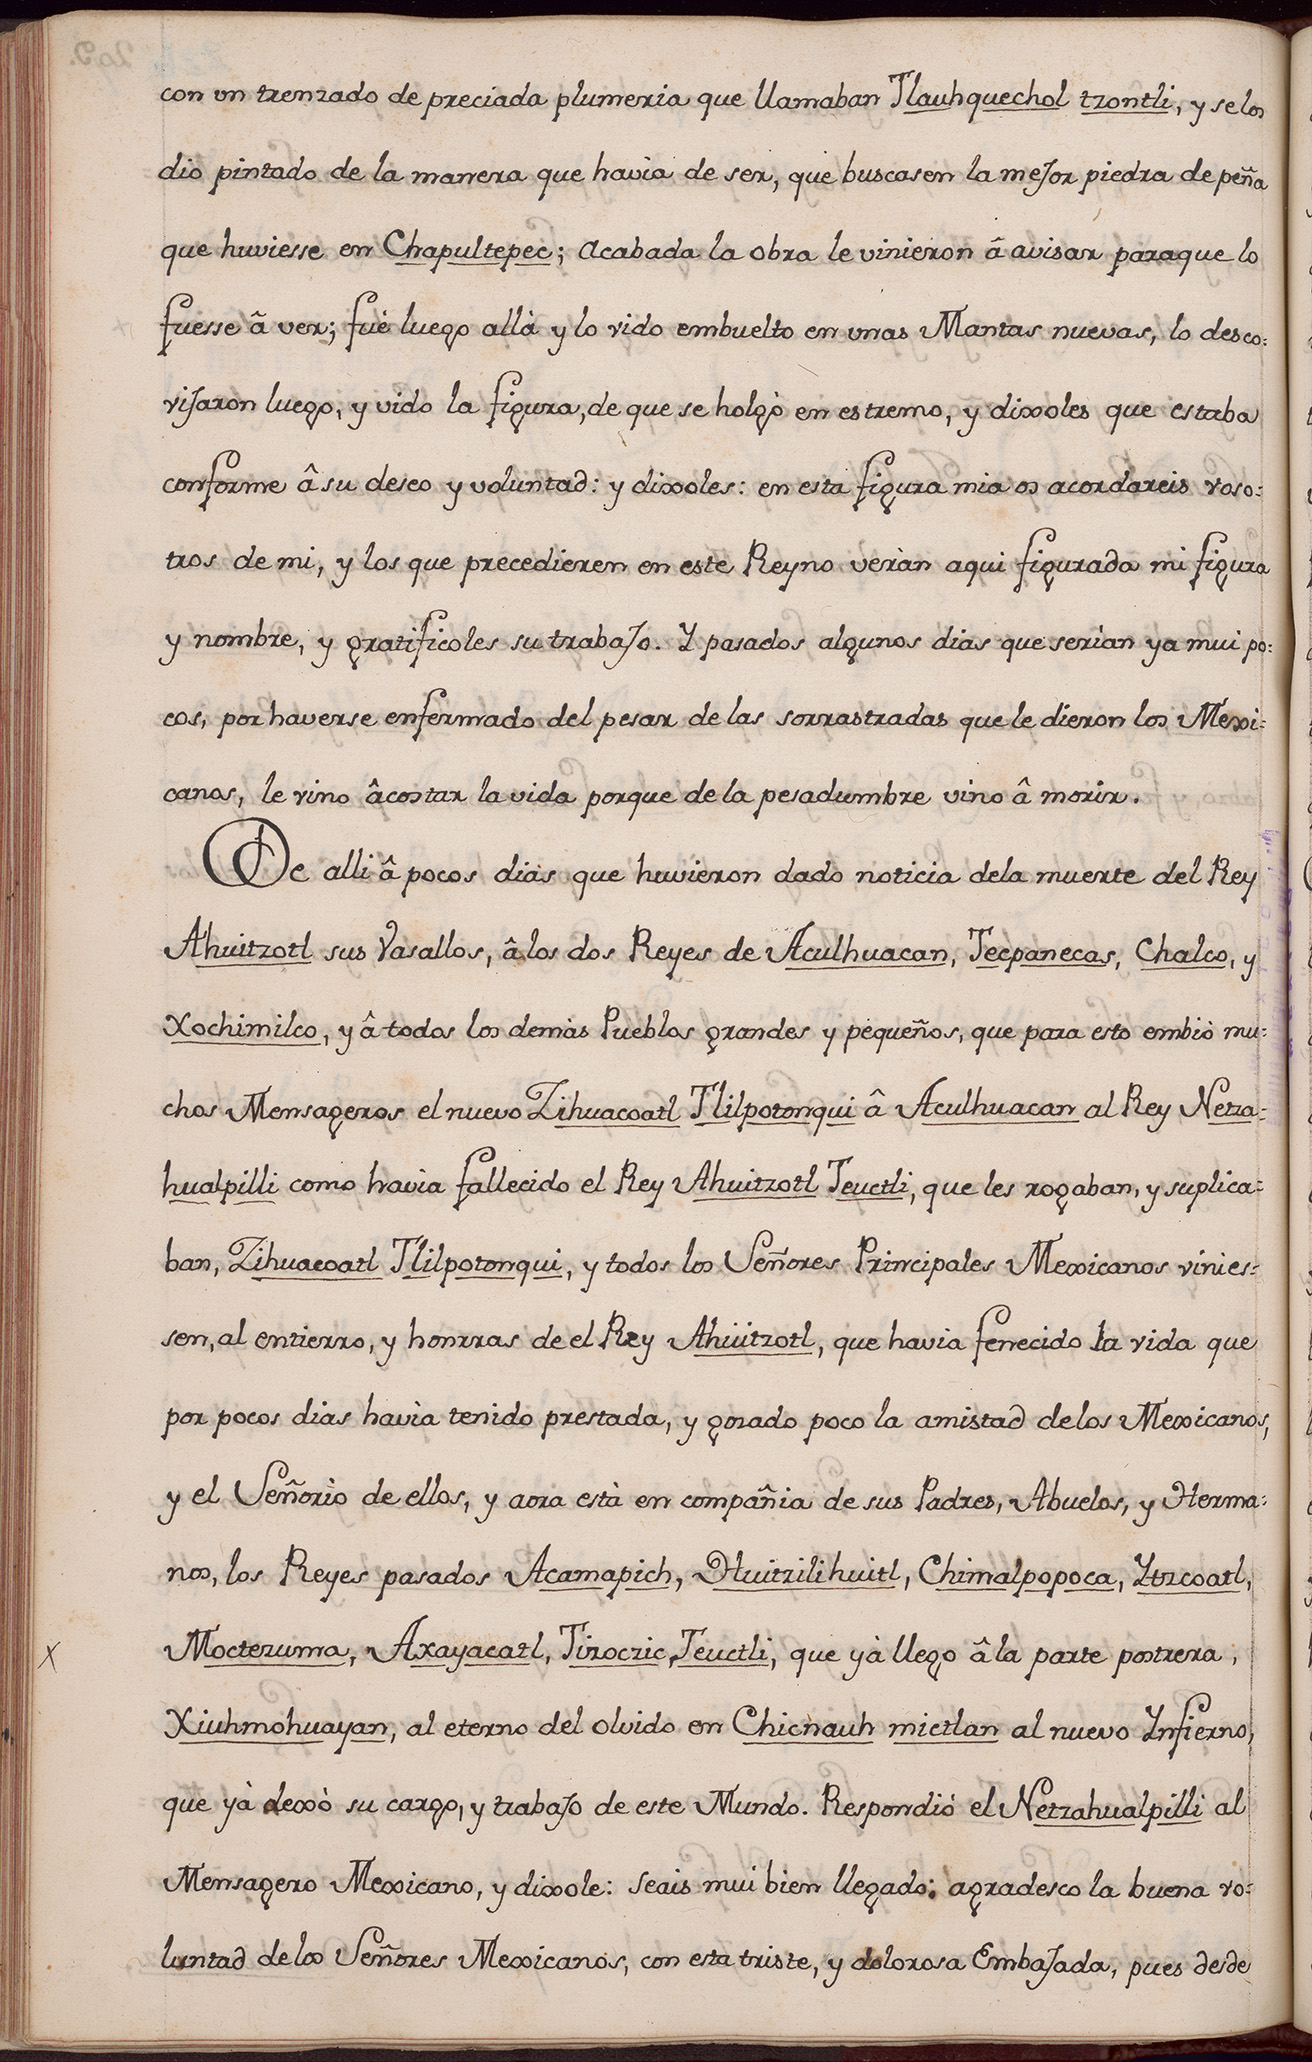 con un trenzado de preciada plumeria que llamaban Tlauhquechol tzontli, y se los
dio pintado de la manera que havia de ser, que buscasen la meJor piedra de peña
que huviesse en Chapultepec; acabada la obra le vinieron â avisar paraque lo
fuesse â ver; fuè luego allà y lo vido embuelto en unas Mantas nuevas, lo desco=
viJaron luego, y vido la figura, de que se holgò en estremo, y dixoles que estaba
conforme â su deseo y voluntad: y dixoles: en esta figura mia os acordareis voso=
tros de mi, y los que precedieren en este Reyno veràn aqui figurada mi figura
y nombre, y gratificoles su trabaJo. Y pasados algunos dias que serìan ya mui po=
cos, por haverse enfermado del pesar de las sorrastradas que le dieron los Mexi=
canos, le vino âcostar la vida porque de la pesadumbre vino â morir.
De alli â pocos dias que huvieron dado noticia dela muerte del Rey
Ahuitzotl sus Vasallos, âlos dos Reyes de Aculhuacan, Tecpanecas, Chalco, y
Xochimilco, y â todos los demàs Pueblos grandes y pequeños, que para esto embiò mu=
chos Mensageros el nuevo Zihuacoatl Tlilpotonqui â Aculhuacan al Rey Netza=
hualpilli como havia fallecido el Rey Ahuitzotl Teuctli, que les rogaban, y suplica=
ban, Zihuacoatl Tlilpotonqui, y todos los Señores Principales Mexicanos vinies=
sen, al entierro, y honrras de el Rey Ahüitzotl, que havia fenecido la vida que
por pocos dias havia tenido prestada, y gozado poco la amistad delos Mexicanos,
y el Señorìo de ellos, y aora està en compañia de sus Padres, Abuelos, y Herma=
nos, los Reyes pasados Acamapich, Huitzilihuitl, Chimalpopoca, Ytzcoatl,
X Moctezuma, Axayacatl, Tizoczic, Teuctli, que yà llego â la parte postrera,
Xiuhmohuayan, al eterno del olvido en Chicnauh mictlan al nuevo Ynfierno,
que yà dexò su cargo, y trabaJo de este Mundo. Respondió el Netzahualpilli al
Mensagero Mexicano, y dixole: seais mui bien llegado; agradesco la buena vo=
luntad delos Señores Mexicanos, con esta triste, y dolorosa EmbaJada, pues desde